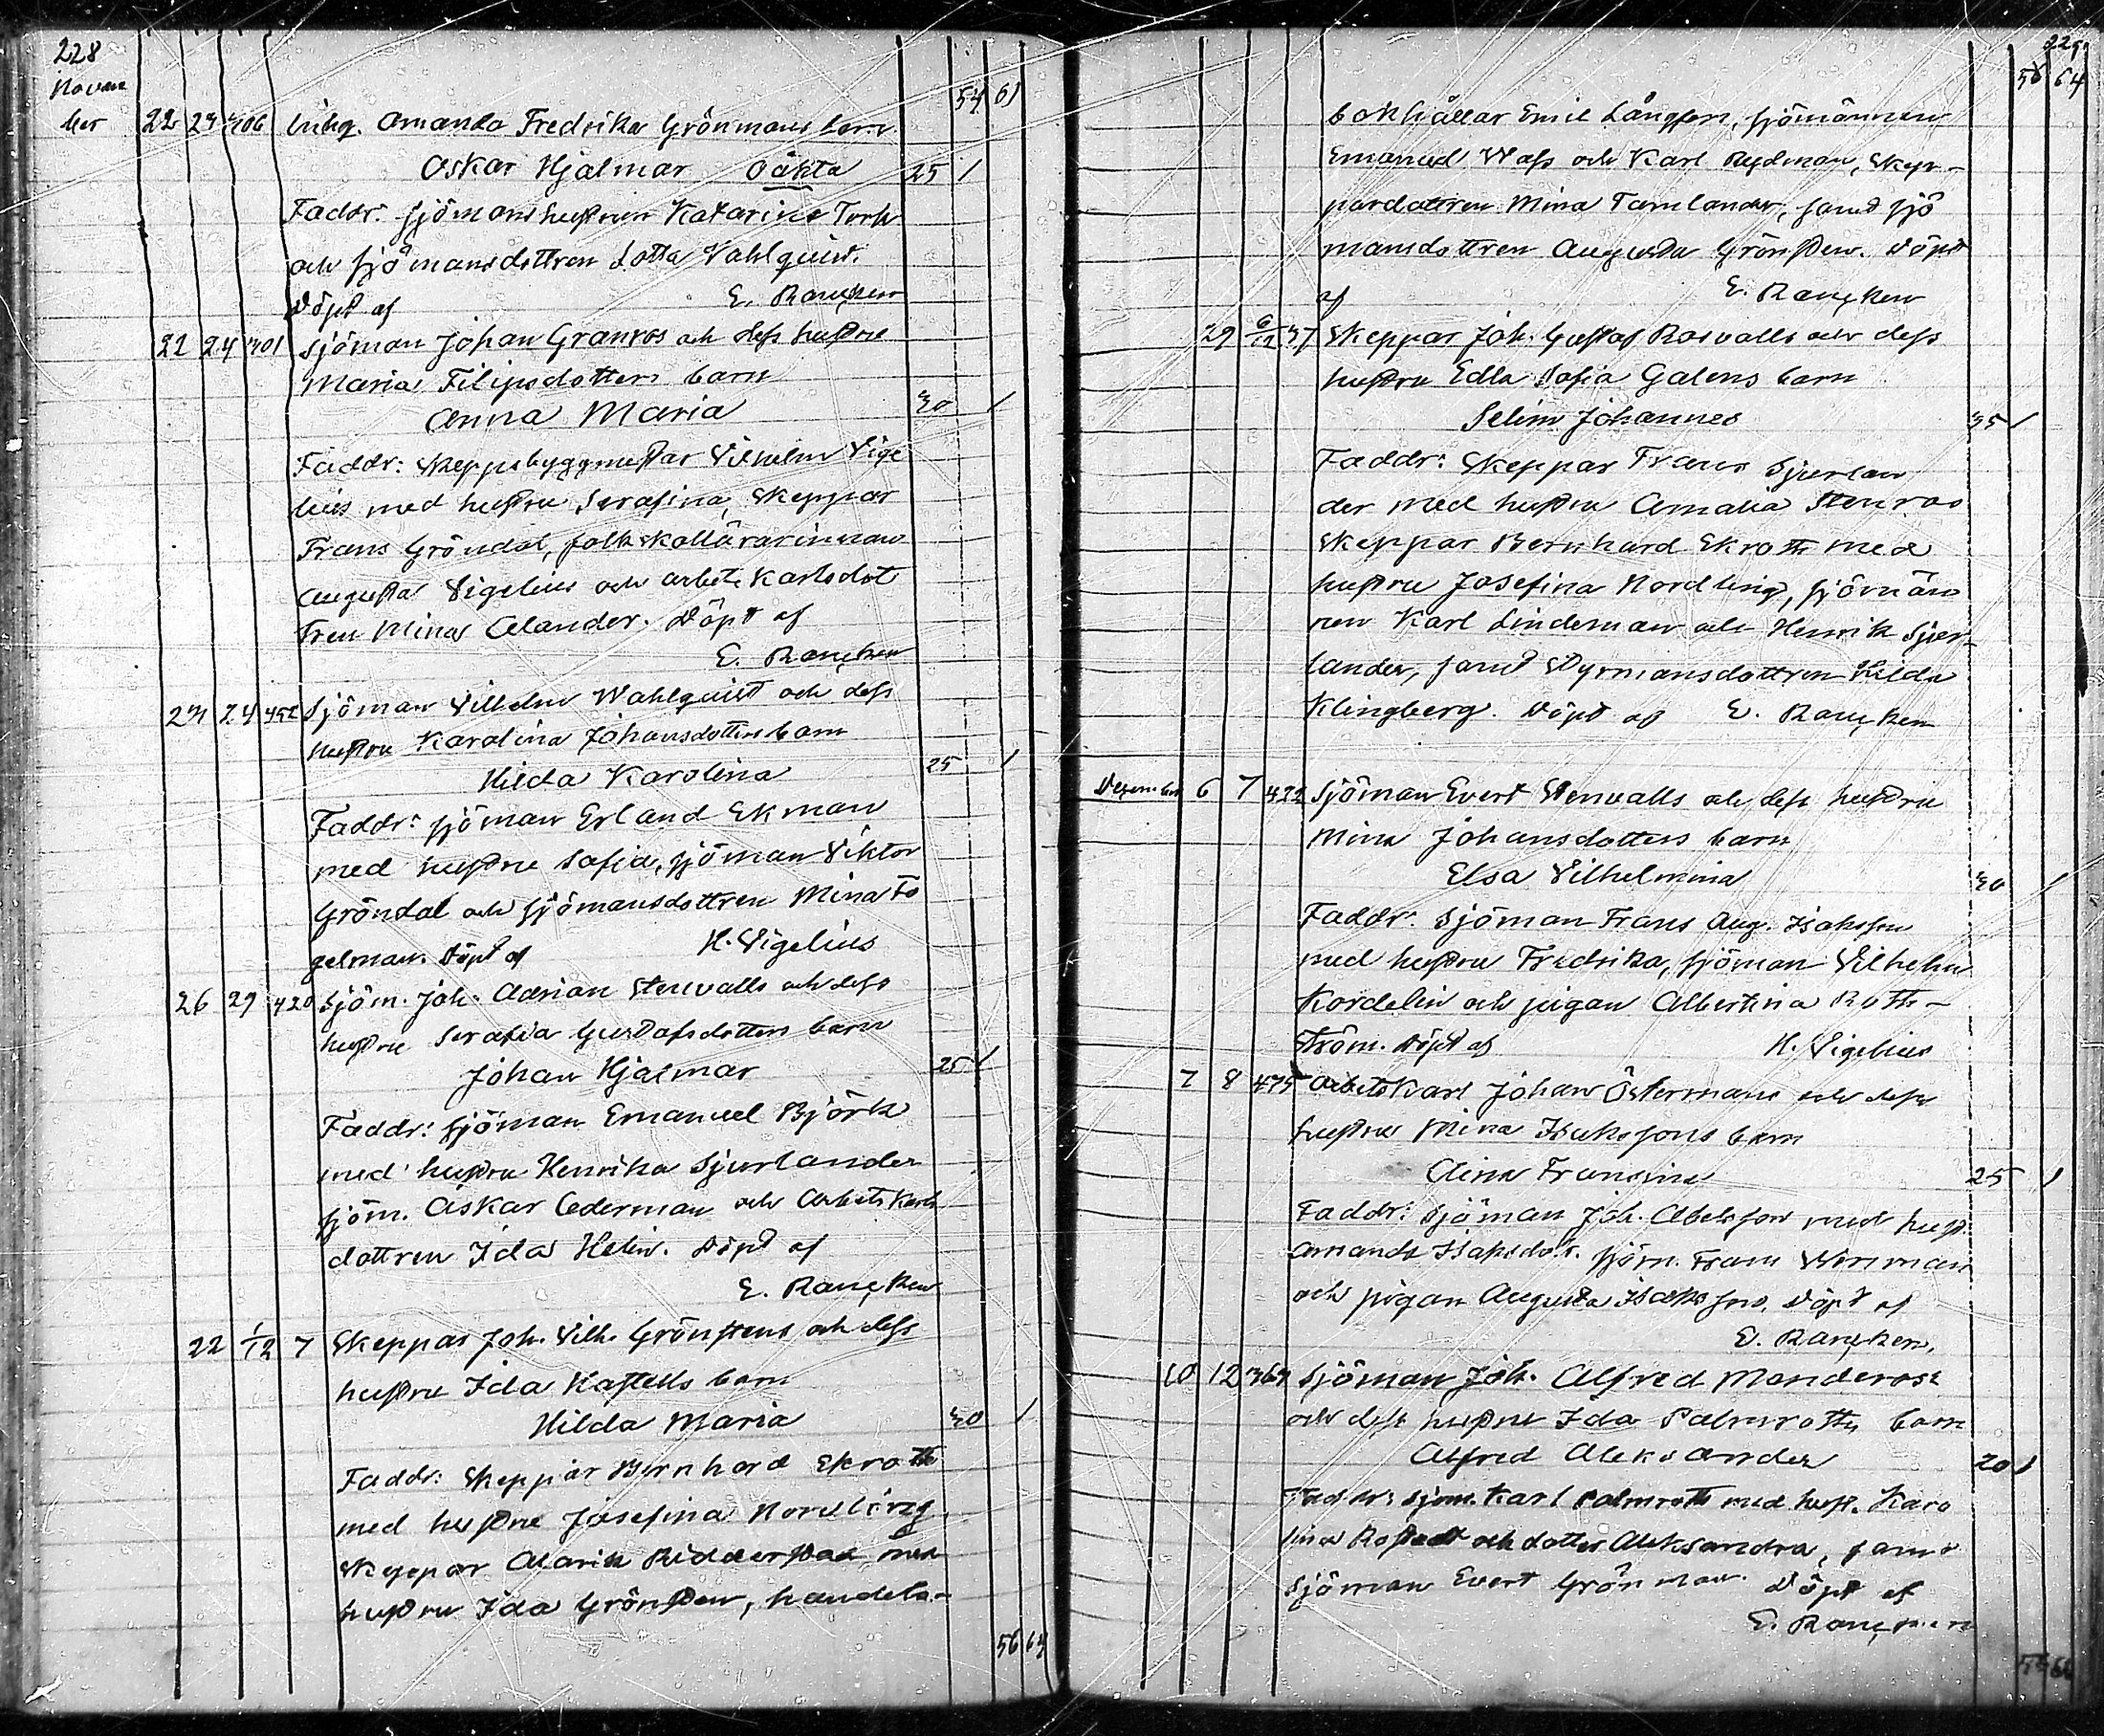 228
Novem
ber
54 61
22 23 306 Inhg. Amanda Fredrika Grönmans barn
Oskar Hjalmar Oäkta 25 1
Faddr: sjömanshustrun Katarina Tork
och sjömansdottren Lotta Vahlquist.
Döpt af E. Rancken
22 24 301 Sjöman Johan Granros och dess hustru
Maria Filipsdotters barn
Anna Maria 30 1
Faddr: Skeppsbyggmestar Vilhelm Vige
lius med hustru Serafina, Skeppar
Frans Gröndal, folkskollärarinnan
Augusta Vigelius och arbetskarlsdot
tren Mina Alander. Döpt af
E. Rancken
23 24 452 Sjöman Vilhelm Wahlquist och dess
hustru Karolina Johansdotters barn
Hilda Karolina 25 1
Faddr: sjöman Erland Ekman
med hustru Sofia, sjöman Viktor
Gröndal och sjömansdottren Mina Fo
gelman. Döpt af H. Vigelius
26 29 420 Sjöm. Joh. Adrian Stenvalls och dess
hustru Serafia Gustafsdotters barn
Johan Hjalmar 25 1
Faddr: sjöman Emanuel Björk
med hustru Henrika Sjurlander
sjöm. Oskar Cederman och Arbetskarls
dottren Ida Helin. Döpt af
E. Rancken
22 1/12 7 Skeppar Joh. Vilh. Grönstens och dess
hustru Ida Hastells barn
Hilda Maria 30 1
Faddr: Skeppar Bernhard Ekroth
med hustru Josefina Nordling,
Skeppar Alarik Ridderstad med
hustru Ida Grönsten, handels-
56 64
229.
56 64
bokhållar Emil Långfors, sjömännen
Emanuel Wass och Karl Rydman, Skep-
pardottren Mina Tamlander, samt sjö
mansdottren Augusta Grönsten. Döpt
af E. Rancken
29 6/12 37 Skeppar Joh. Gustaf Rosvalls och dess
hustru Edla Sofia Galens barn
Selim Johannes 35 1
Faddr: Skeppar Frans Sjurlan
der med hustru Amalia Stenros
Skeppar Bernhard Ekroth med
hustru Josefina Nordling, sjömän
nen Karl Lindeman och Henrik Sjur-
lander, samt Styrmansdottren Hilda
Klingberg. Döpt af E. Rancken
December 6 7 422 Sjöman Evert Stenvalls och dess hustru
Mina Johansdotters barn
Elsa Vilhelmina 30 1
Faddr: Sjöman Frans Aug. Isaksson
med hustru Fredrika, sjöman Vilhelm
Kordelin och pigan Albertina Roth-
ström. Döpt af H. Vigelius
7 8 475 Arbetskarl Johan Östermans och dess
hustru Mina Isakssons barn
Aina Fransina 25 1
Faddr: Sjöman Joh. Abelsson med hust.
Amanda Isaksdot. sjöm. Frans
och pigan Augusta Isaksson. Döpt af
E. Rancken.
10 12 363 Sjöman Joh. Alfred Manderos
och dess hustru Ida Palmroths barn
Alfred Aleksander 20 1
Faddr: Sjöm. Karl Palmroth med hust. Karo
lina Rostedt och dotter Aleksandra, samt
Sjöman Evert Grönman. Döpt af
E. Rancken